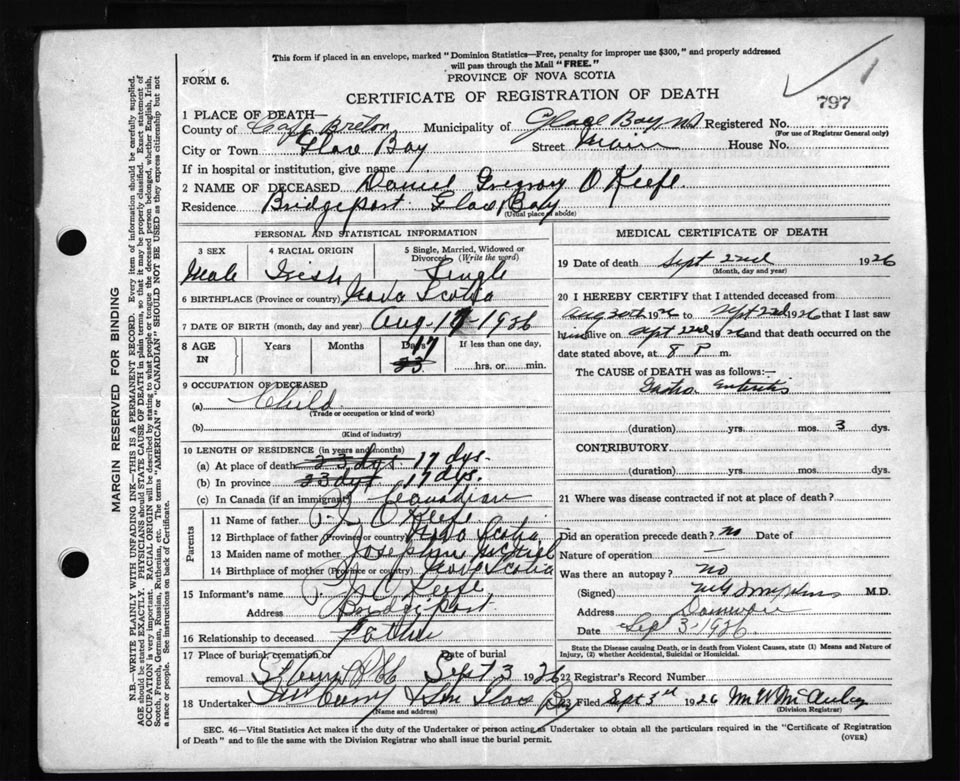 This form if placed in an envelope, marked "Dominion Statistics—Free, penalty for improper use $300," and properly addressed
will pass through the Mail "FREE."
FORM 6.
PROVINCE OF NOVA SCOTIA
CERTIFICATE OF REGISTRATION OF DEATH
797
1 PLACE OF DEATH—
County of Cape Breton Municipality of Glace Bay NS Registered No.
(For use of Registrar General only)
City or Town Glace Bay Street Main House No.
If in hospital or institution, give name
2 NAME OF DECEASED Daniel Gregory O Keefe
Residence Bridgeport Glace Bay
(Usual place of abode)
PERSONAL AND STATISTICAL INFORMATION
3 SEX Male
4 RACIAL ORIGIN Irish
5 Single, Married, Widowed or Divorced (Write the word) Single
6 BIRTHPLACE (Province or country) Nova Scotia
7 DATE OF BIRTH (month, day and year) Aug 17 - 1926
8 AGE IN Years Months Days 17 23 If less than one day, hrs. or min.
9 OCCUPATION OF DECEASED
(a) Child
(Trade or occupation or kind of work)
(b)
(Kind of industry)
10 LENGTH OF RESIDENCE (in years and months)
(a) At place of death 23 dys. 17 dys.
(b) In province 23 dys 17 dys.
(c) In Canada (if an immigrant) Canadian
Parents
11 Name of father P. J. O Keefe
12 Birthplace of father (Province or country) Nova Scotia
13 Maiden name of mother Josephine McNeil
14 Birthplace of mother (Province or country) Nova Scotia
15 Informant's name P. J. O Keefe
Address Bridgeport
16 Relationship to deceased Father
17 Place of burial, cremation or Date of burial
removal Sept 3 1926
18 Undertaker Glace Bay
(Name and address)
MEDICAL CERTIFICATE OF DEATH
19 Date of death Sept 22nd 1926
(Month, day and year)
20 I HEREBY CERTIFY that I attended deceased from
Aug 20th 1926 to Sept 22d 1926 that I last saw
him alive on Sept 22d 1926 and that death occurred on the
date stated above, at 8 P m.
The CAUSE of DEATH was as follows:—
Gastro Enteritis
(duration) yrs. mos. 3 dys.
CONTRIBUTORY.
(duration) yrs. mos. dys.
21 Where was disease contracted if not at place of death?
Did an operation precede death? No Date of
Nature of operation —
Was there an autopsy? No
(Signed) M.D.
Address
Date Sept 3 - 1926
State the Disease causing Death, or in death from Violent Causes, state (1) Means and Nature of
Injury, (2) whether Accidental, Suicidal or Homicidal.
22 Registrar's Record Number
23 Filed Sept 3rd 1926
(Division Registrar)
SEC. 46—Vital Statistics Act makes it the duty of the Undertaker or person acting as Undertaker to obtain all the particulars required in the "Certificate of Registration
of Death" and to file the same with the Division Registrar who shall issue the burial permit.
(OVER)
MARGIN RESERVED FOR BINDING
N.B.—WRITE PLAINLY WITH UNFADING INK—THIS IS A PERMANENT RECORD. Every item of information should be carefully supplied.
AGE should be stated EXACTLY. PHYSICIANS should STATE CAUSE OF DEATH in plain terms, so that it may be properly classified. Exact statement of
OCCUPATION is very important. RACIAL ORIGIN will be described by stating to what people or tongue the deceased person belonged, whether English, Irish,
Scotch, French, German, Russian, Ruthenian, etc. The terms "AMERICAN" or "CANADIAN" SHOULD NOT BE USED as they express citizenship but not
a race or people. See instructions on back of Certificate.